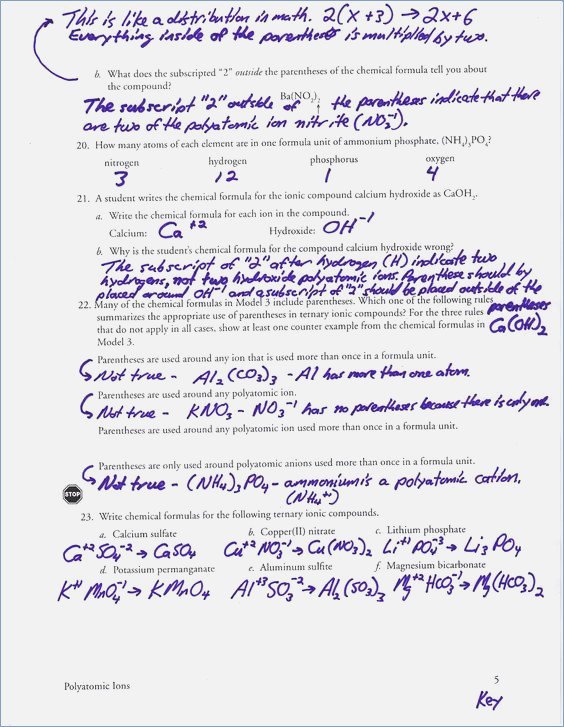 This is like a distribution in math. 2(x+3) → 2x+6
Everything inside of the parentheses is multiplied by two.
b. What does the subscripted "2" outside the parentheses of the chemical formula tell you about
the compound?
Ba(NO₂)₂
The subscript "2" outside of ↑ the parentheses indicate that there
are two of the polyatomic ion nitrite (NO₂⁻¹).
20. How many atoms of each element are in one formula unit of ammonium phosphate, (NH₄)₃PO₄?
nitrogen hydrogen phosphorus oxygen
3 12 1 4
21. A student writes the chemical formula for the ionic compound calcium hydroxide as CaOH₂.
a. Write the chemical formula for each ion in the compound.
Calcium: Ca⁺² Hydroxide: OH⁻¹
b. Why is the student's chemical formula for the compound calcium hydroxide wrong?
The subscript of "2" after hydrogen (H) indicate two
hydrogens, not two hydroxide polyatomic ions. Paranthese should by
placed around OH⁻¹ and a subscript of "2" should be placed outside of the
parentheses
22. Many of the chemical formulas in Model 3 include parentheses. Which one of the following rules
summarizes the appropriate use of parentheses in ternary ionic compounds? For the three rules
that do not apply in all cases, show at least one counter example from the chemical formulas in
Ca(OH)₂
Model 3.
Parentheses are used around any ion that is used more than once in a formula unit.
Not true - Al₂(CO₃)₃ - Al has more than one atom.
Parentheses are used around any polyatomic ion.
Not true - KNO₃ - NO₃⁻¹ has no parentheses because there is only one.
Parentheses are used around any polyatomic ion used more than once in a formula unit.
Parentheses are only used around polyatomic anions used more than once in a formula unit.
Not true - (NH₄)₃PO₄ - ammonium is a polyatomic cation.
(NH₄⁺¹)
STOP
23. Write chemical formulas for the following ternary ionic compounds.
a. Calcium sulfate b. Copper(II) nitrate c. Lithium phosphate
Ca⁺²SO₄⁻² → CaSO₄ Cu⁺²NO₃⁻¹ → Cu(NO₃)₂ Li⁺¹PO₄⁻³ → Li₃PO₄
d. Potassium permanganate e. Aluminum sulfite f. Magnesium bicarbonate
K⁺¹MnO₄⁻¹ → KMnO₄ Al⁺³SO₃⁻² → Al₂(SO₃)₃ Mg⁺²HCO₃⁻¹ → Mg(HCO₃)₂
Polyatomic Ions 5
Key